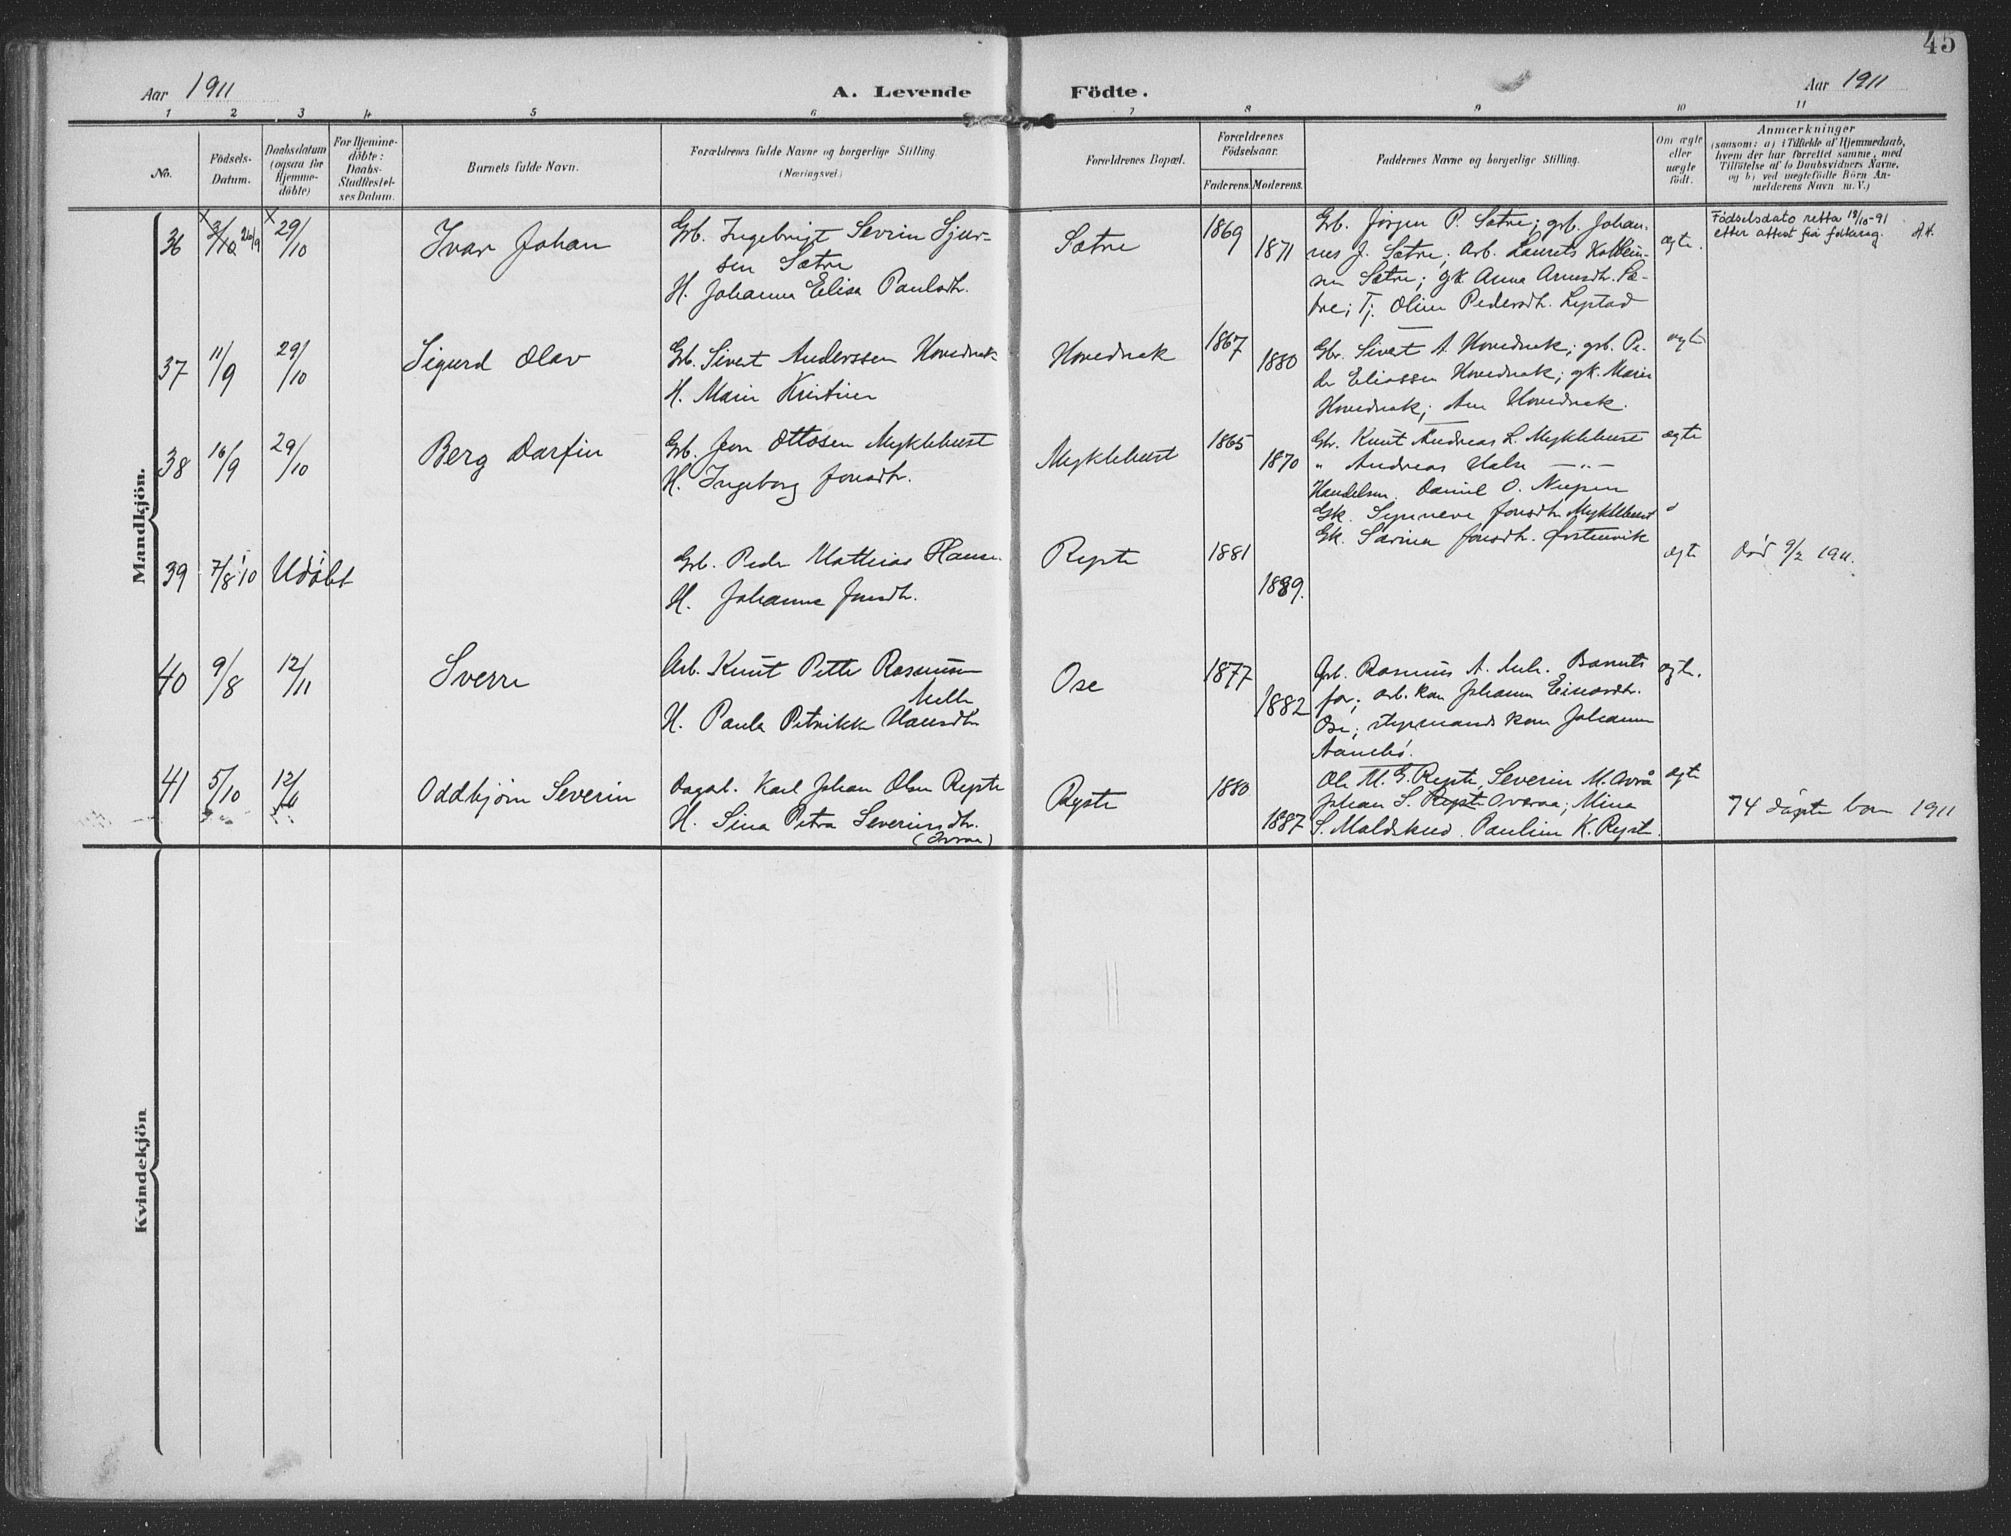 45
Aar 1911
A. Levende Födte.
Aar 1911
1 2 3 4 5 6 7 8 9 10 11
No.
Födsels-
Datum.
Daabsdatum
(ogsaa for
Hjemme-
döbte)
For Hjemme-
döbte:
Daabs-
Stadfæstel-
ses Datum.
Barnets fulde Navn.
Forældrenes fulde Navne og borgerlige Stilling
(Næringsvei.)
Forældrenes Bopæl.
Forældrenes
Födselsaar.
Faderens. Moderens.
Faddernes Navne og borgerlige Stilling.
Om ægte
eller
uægte
født.
Anmærkninger
(saasom: a) i Tilfælde af Hjemmedaab,
hvem der har forrettet samme, med
Tilföielse af to Daabsvidners Navne,
og b) ved uægtefödte Börn An-
melderens Navn m. V.)
Mandkjön.
36
x 3/10 26/9
x 29/10
Ivar Johan
Grb. Ingebrigt Sevrin Sjur-
sen Sætre
H. Johanna Elisa Paulsdtr.
Sætre
1869
1871
Grb. Jørgen P. Sætre; grb. Johan-
nes J. Sætre; Arb. Laurits
sen Sætre; gk Anna Arnesdtr. Sæ-
tre; Tj. Oline Pedersdtr.
ægte.
Födselsdato retta 18/10-91
etter attest frå folkereg.
37
11/9
29/10
Sigurd Olav
Grb. Sivert Anderssen Hovednak
H. Marie Kristine
Hovednak
1867
1880
Gbr. Sivert A. Hovednak; grb. Pe-
der Eliassen Hovednak; gk. Marie
Hovednak; Ane Hovednak.
ægte
38
16/9
29/10
Berg Darfin
Grb. Jon Ottosen Myklebust
H. Ingeborg Jonsdtr.
Myklebust
1865
1870
Gbr. Knut Andreas L. Myklebust
" Andreas Halse — " —
Handelsm. Daniel O.
Gk. Synneve Jonsdtr. Myklebust
Gk. Jonsdtr. Ørstenvik
ægte
39
7/8 10
Udøbt
Grb. Peder Mathias Hanse.
H. Johanne Jonsdtr.
Ryste
1881
1889.
ægte
død 9/2 1911.
40
9/8
12/11
Sverre
Arb. Knut Petter Rasmussen
Melle
H. Paula Petrikke Hansdtr.
Ose
1877
1882
Arb. Rasmus A. Barnets
far; arb. kone Johanna Einarsdtr.
Ose; styrmands kone Johanne
Aambø.
ægte.
41
5/10
12/11
Oddbjørn Severin
Dagarb. Karl Johan Olsen Ryste
H. Sina Petra Severinsdtr.
Ryste
1880
1887
Ole M. G. Ryste, Severin M. Øvrå
Johan S. Ryste Øveraa; Mina
S. Maldskred. Pauline K. Ryste.
ægte
74 døpte born 1911
Kvindekjön